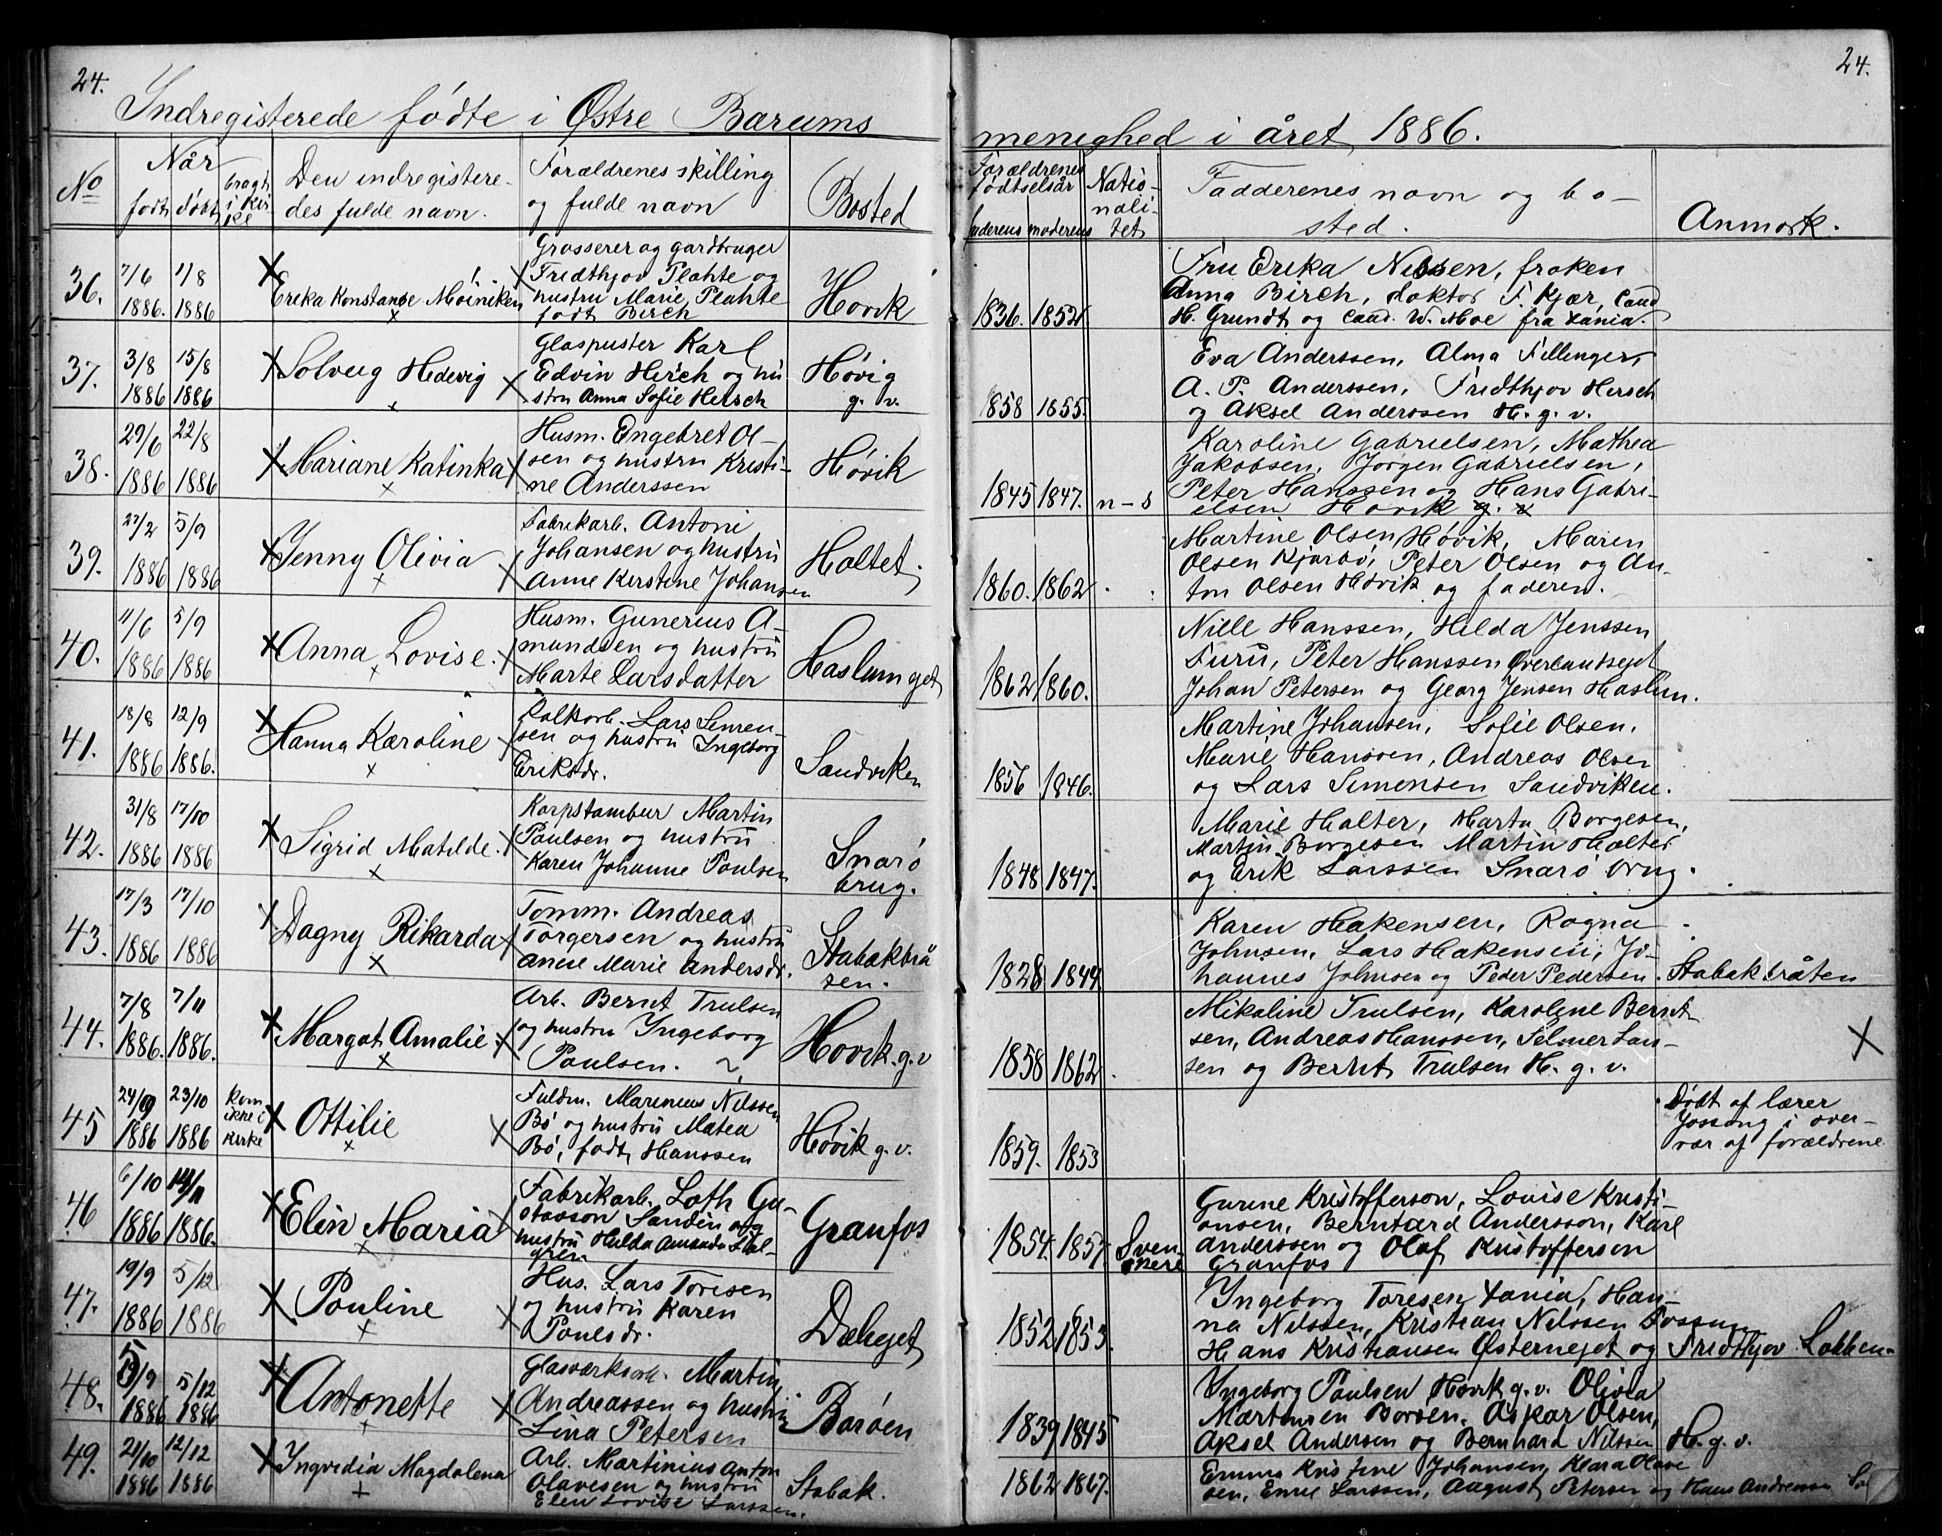 24.
Indregisterede fødte i Østre Bærums
No
Når
født døbt
bragt i kirke
Den indregistere-
des fulde navn.
Forældrenes stilling
og fulde navn
Bosted
36.
7/6 1886. 1/8 1886
Erika Konstanse Møiniken
Grosserer og gardbruger
Fredthjov Plahte og
hustru Marie Plahte
født Birch
Høvik
37.
3/8 1886 15/8 1886
Solveig Hedevig
Glaspuster Karl
Edvin Hirsch og hu
stru Anna Sofie Hirsch
Høvig
g. v.
38.
29/6 1886 22/8 1886
Mariane Katinka
Husm. Engebret Ol-
sen og hustru Kristi-
ne Anderssen
Høvik
39.
27/2 1886 5/9 1886
Jenny Olivia
Fabrikarb. Antoni
Johansen og hustru
Anne Kirstine Johansen
Holtet.
40.
11/6 1886 5/9 1886
Anna Lovise.
Husm. Gunerius A-
mundsen og hustru
Marte Larsdatter
Haslumejet
41.
18/8 1886 12/9 1886.
Hanna Karoline
Kalkarb. Lars Simen-
sen og hustru Ingeborg
Eriksdr.
Sandviken
42.
31/8 1886 17/10 1886
Sigrid Matilde.
Korpstambur Martin
Paulsen og hustru
Karen Johanne Paulsen
Snarø
brug.
43.
17/3 1886 17/10 1886
Dagny Rikarda
Tømm. Andreas
Torgersen og hustru
Anne Marie Andersdr.
Stabækbrå
ten.
44.
7/8 1886. 7/11 1886.
Margot Amalie
Arb. Bernt Trulsen
og hustru Ingeborg
Paulsen.
Høvik. g. v
45
24/9 1886 23/10 1886
kom
ikke i
kirke
Ottilie
Fuldm. Marinius Nilssen
Bø og hustru Matea
Bø, født Hanssen
Høvik g. v.
46
6/10 1886 14/11 1886.
Elin Maria
Fabrikarb. Loth Gu-
stasson Sandin og
hustru Hulda Amanda
Granfos
47.
19/9 1886 5/12 1886
Pauline
Hus. Lars Toresen
og hustru Karen
Paulsdr.
Dæliejet
48.
/9 1886 5/12 1886
Antonette
Glasværksarb. Martin
Andreassen og hustru
Lina Petersen
Borøen
49.
21/10 1886 12/12 1886
Ingvedia Magdalena
Arb. Martinius Anton
Olavesen og hustru
Elen Lovise Larssen.
Stabæk.
24.
menighed i året 1886.
Forældrenes
fødtselsår
faderens moderens
Natio-
nali-
tet
Fadderenes navn og bo-
sted.
Anmærk.
1836. 1852
Fru Erika Nilssen, frøken
Anna Birch, doktor F. Kjær, Cand
H. Grundt og Cand. W. Moe fra Xania.
1858 1855.
Eva Anderssen, Alma Fillinger,
A. P. Anderssen, Fridthjov Hirsch
og Aksel Anderssen H. g. v.
1845 1847. n-s
Karoline Gabrielsen, Mathea
Jakobsen, Jørgen Gabrielsen,
Peter Hanssen og Hans Gabri-
elsen Høvik g. v
1860. 1862
Martine Olsen Høvik, Maren
Olsen Kjørbo, Peter Olsen og An-
ton Olsen Høvik og faderen.
1862 1860.
Nille Hanssen, Hilda Jenssen
Furu, Peter Hanssen Øverlandsejet
Johan Petersen og Georg Jensen Haslum.
1856 1846.
Martine Johansen, Sofie Olsen,
Marie Hanssen, Andreas Olsen
og Lars Simensen Sandviken.
1848 1847.
Marie Halter, Marta Børgesen,
Martin Børgesen Martin Halter
og Erik Larssen Snarø brug.
1828 1844
Karen Hakensen, Ragna
Johnsen, Lars Hakensen, Jo-
hannes Johnsen og Peder Pedersen. Stabækbråten
1858 1862
Mikaline Trulsen, Karoline Bernt
sen, Andreas Hanssen, Selmer Lars-
sen og Bernt Trulsen H. g. v.
1859. 1853
Døbt af lærer
Jossang i over-
vær af forældrene
1854. 1857
Sven-
skere
Gurine Kristofferson, Lovise Kristi-
ansen, Berntard Andersson, Karl
Anderssen og Olof Kristofferson
Granfos
1852 1853.
Ingeborg Toresen Xania, Han-
na Nilssen, Kristian Nilssen Fossum
Hans Kristiansen Østernejet og Fridthjov Løkken
1839 1845
Ingeborg Paulsen Høvik g. v. Olivia
Martinsen Borøen, Oskar Olsen,
Aksel Andersen og Bernhard Nilssen H. g. v.
1862 1867.
Emma Kristine Johansen, Klara Olave
sen, Emil Larssen, August Petersen og Hans Andersen